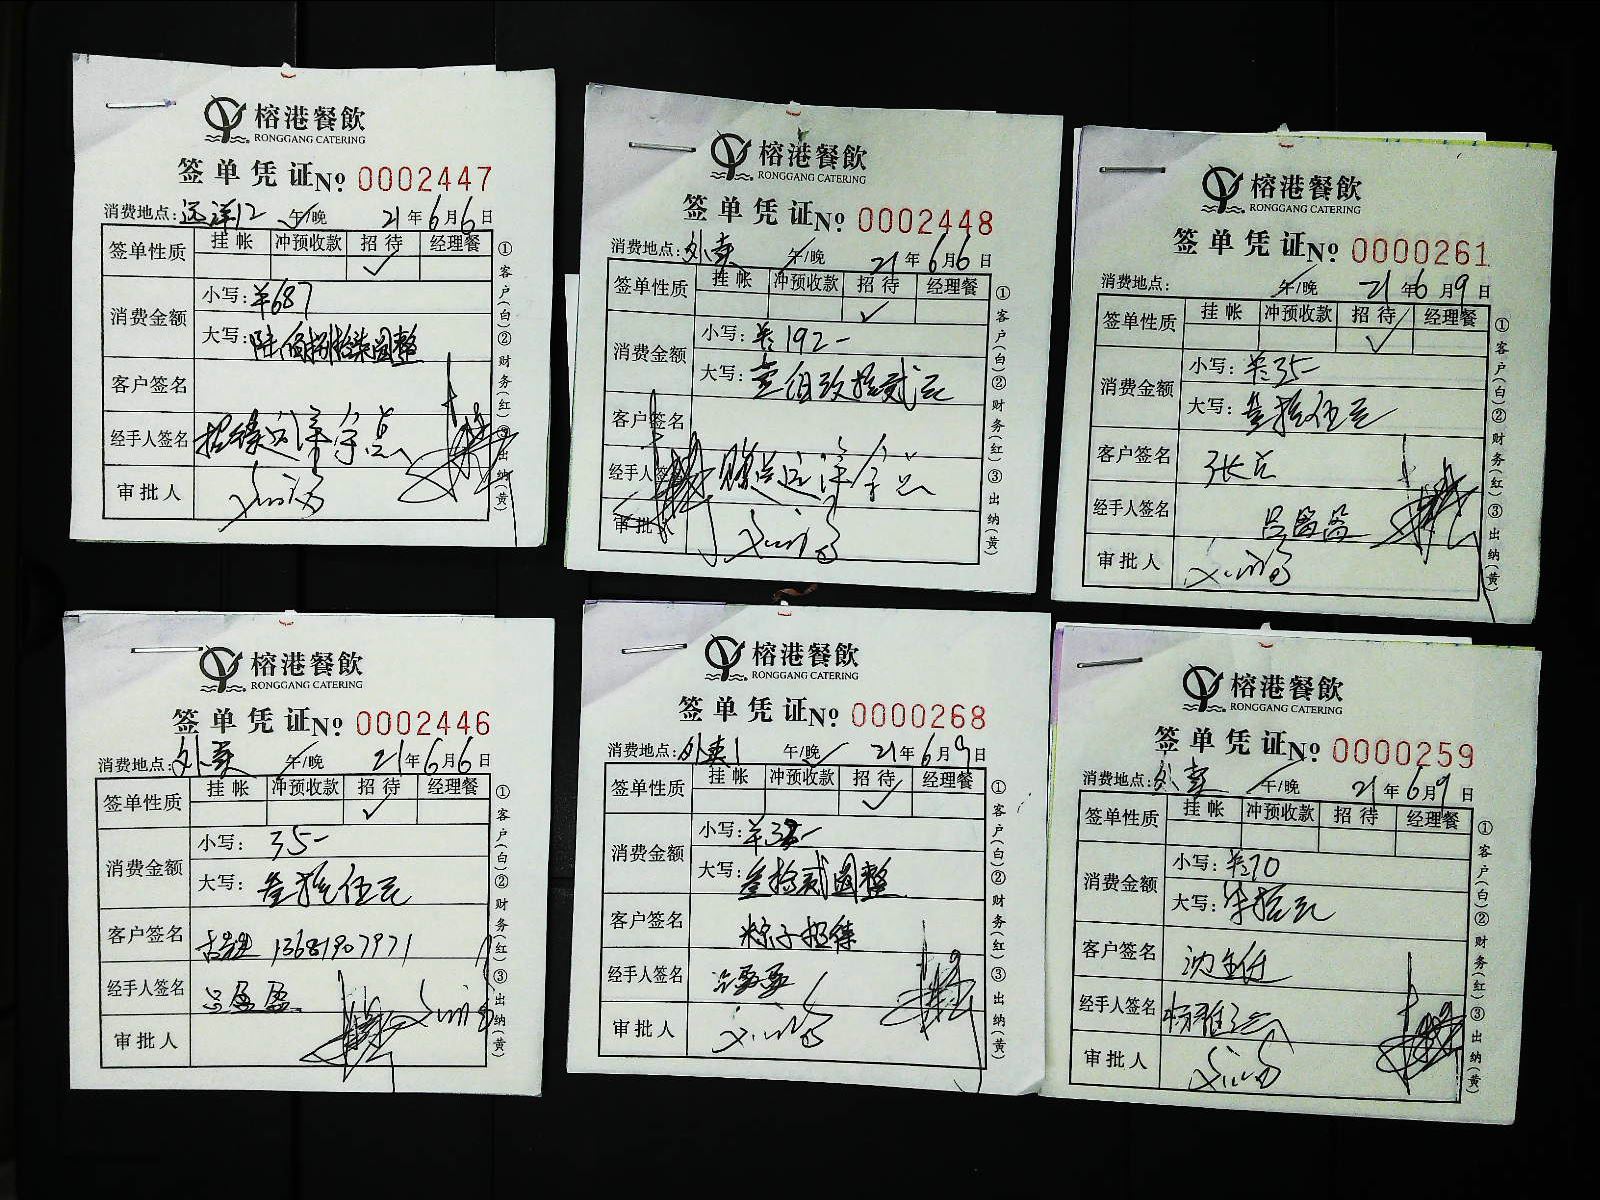 榕港餐飲
RONGGANG CATERING
签单凭证 № 0002447
消费地点: 远洋12 午/晚 21年6月6日
签单性质 挂帐 冲预收款 招待 经理餐
✓
消费金额 小写: ¥687
大写: 陆佰捌拾柒圆整
客户签名
经手人签名 招待远洋余总
审批人
①客户(白)②财务(红)③出纳(黄)
榕港餐飲
RONGGANG CATERING
签单凭证 № 0002448
消费地点: 外卖 午/晚 21年6月6日
签单性质 挂帐 冲预收款 招待 经理餐
✓
消费金额 小写: ¥192-
大写: 壹佰玖拾贰元
客户签名
经手人签名 赠送远洋余总
审批人
①客户(白)②财务(红)③出纳(黄)
榕港餐飲
RONGGANG CATERING
签单凭证 № 0000261
消费地点: 午/晚 21年6月9日
签单性质 挂帐 冲预收款 招待 经理餐
✓
消费金额 小写: ¥35-
大写: 叁拾伍元
客户签名 张总
经手人签名 吕盈盈
审批人
①客户(白)②财务(红)③出纳(黄)
榕港餐飲
RONGGANG CATERING
签单凭证 № 0002446
消费地点: 外卖 午/晚 21年6月6日
签单性质 挂帐 冲预收款 招待 经理餐
✓
消费金额 小写: 35-
大写: 叁拾伍元
客户签名 13681907971
经手人签名 吕盈盈
审批人
①客户(白)②财务(红)③出纳(黄)
榕港餐飲
RONGGANG CATERING
签单凭证 № 0000268
消费地点: 外卖1 午/晚 ✓ 21年6月9日
签单性质 挂帐 冲预收款 招待 经理餐
✓
消费金额 小写: ¥32-
大写: 叁拾贰圆整
客户签名 粽子招待
经手人签名
审批人
①客户(白)②财务(红)③出纳(黄)
榕港餐飲
RONGGANG CATERING
签单凭证 № 0000259
消费地点: 外卖 午/晚 21年6月9日
签单性质 挂帐 冲预收款 招待 经理餐
消费金额 小写: ¥70
大写: 柒拾元
客户签名 沈主任
经手人签名
审批人
①客户(白)②财务(红)③出纳(黄)